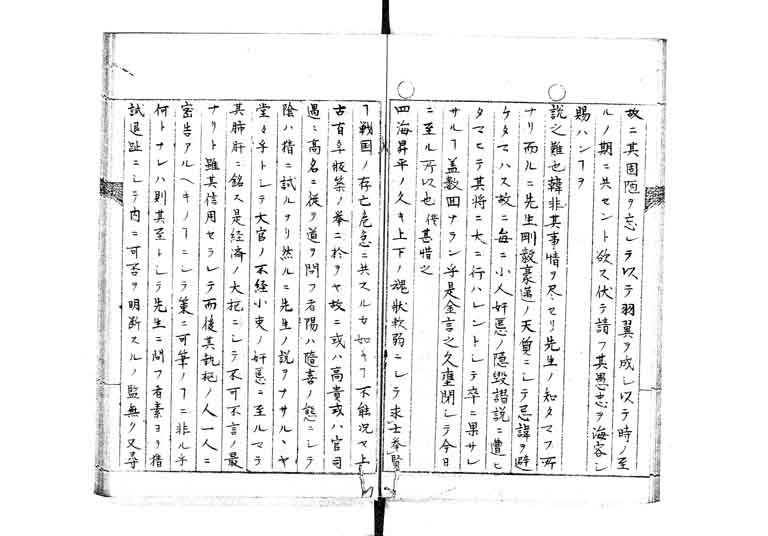 故ニ其固陋ヲ忘レテ以テ羽翼ヲ成シ以テ時ノ至
ルノ期ニ共セント欲ス伏テ請フ其愚忠ヲ海容シ
賜ハンヿヲ
説之難也韓非其事情ヲ尽セリ先生ノ知タマフ所
ナリ而ルニ先生剛毅豪邁ノ天質ニシテ忌諱ヲ避
ケタマハス故ニ毎ニ小人奸慝ノ隠毀譖説ニ遭ヒ
タマヒテ其将ニ大ニ行ハレントシテ卒ニ果サレ
サルヿ蓋数回ナラン乎是金言之久壅閉シテ今日
ニ至ル所以也 甚惜之
四海昇平ノ久キ上下ノ 状軟弱ニシテ求士挙賢
ヿ戦国ノ存亡危急ニ共スルカ如キヿ不能況ヤ上
古有莘版築ノ挙ニ於ヲヤ故ニ或ハ高貴或ハ官司
遇ニ高名ニ従ヲ道ヲ問フ者陽ハ随喜ノ態ニシテ
陰ハ猜ニ試ルナリ然ルニ先生ノ説ヲナサル丶ヤ
堂々乎トシテ大官ノ不経小吏ノ奸慝ニ至ルマテ
其肺肝ニ銘ス是経済ノ大 ニシテ不可不言ノ最
ナリト雖其信用セラレテ而後其執 ノ人一人ニ
密告アルヘキノヿニシテ筆ニ可筆ノヿニ非ル乎
何トナレハ則其至トシテ先生ニ問フ者素ヨリ猜
試退趾ニシテ内ニ可否ヲ明断スルノ監無ク又尋